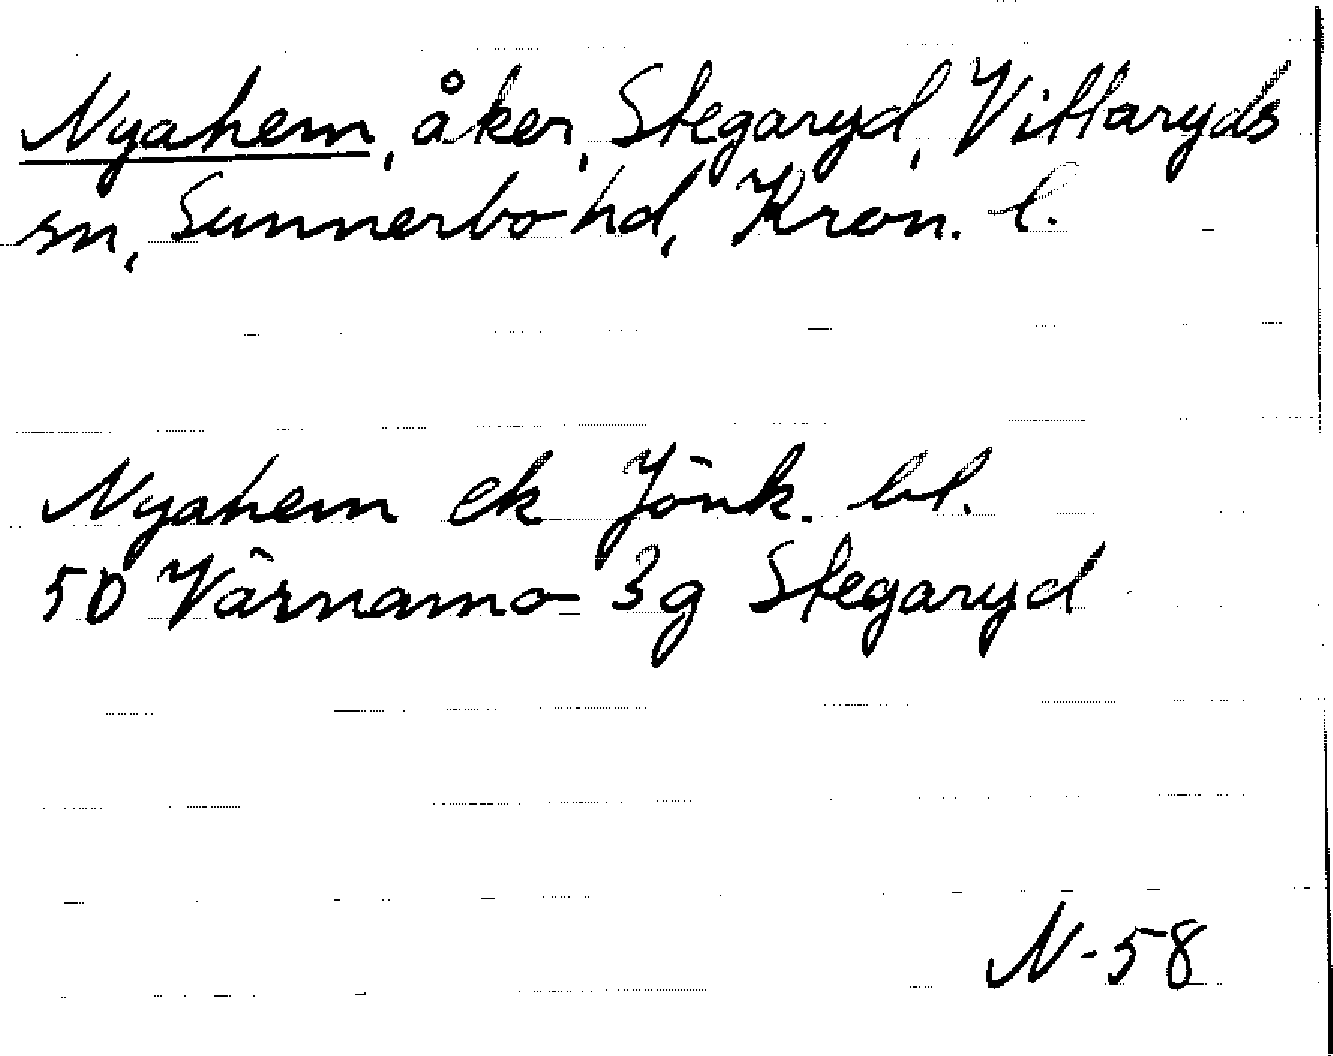 Nyahem, åker, Stegaryd, Vittaryds
sn, Sunnerbo hd, Kron. l.
Nyahem ek Jönk. bl.
50 Värnamo 3g Stegaryd
N-58